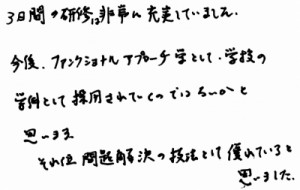 3日間の研修は非常に充実していました。
今後、ファンクショナルアプローチ学として、学校の
学科として採用されていくのでは ないかと
思います
それ位 問題解決の技法として優れていると
思いました。